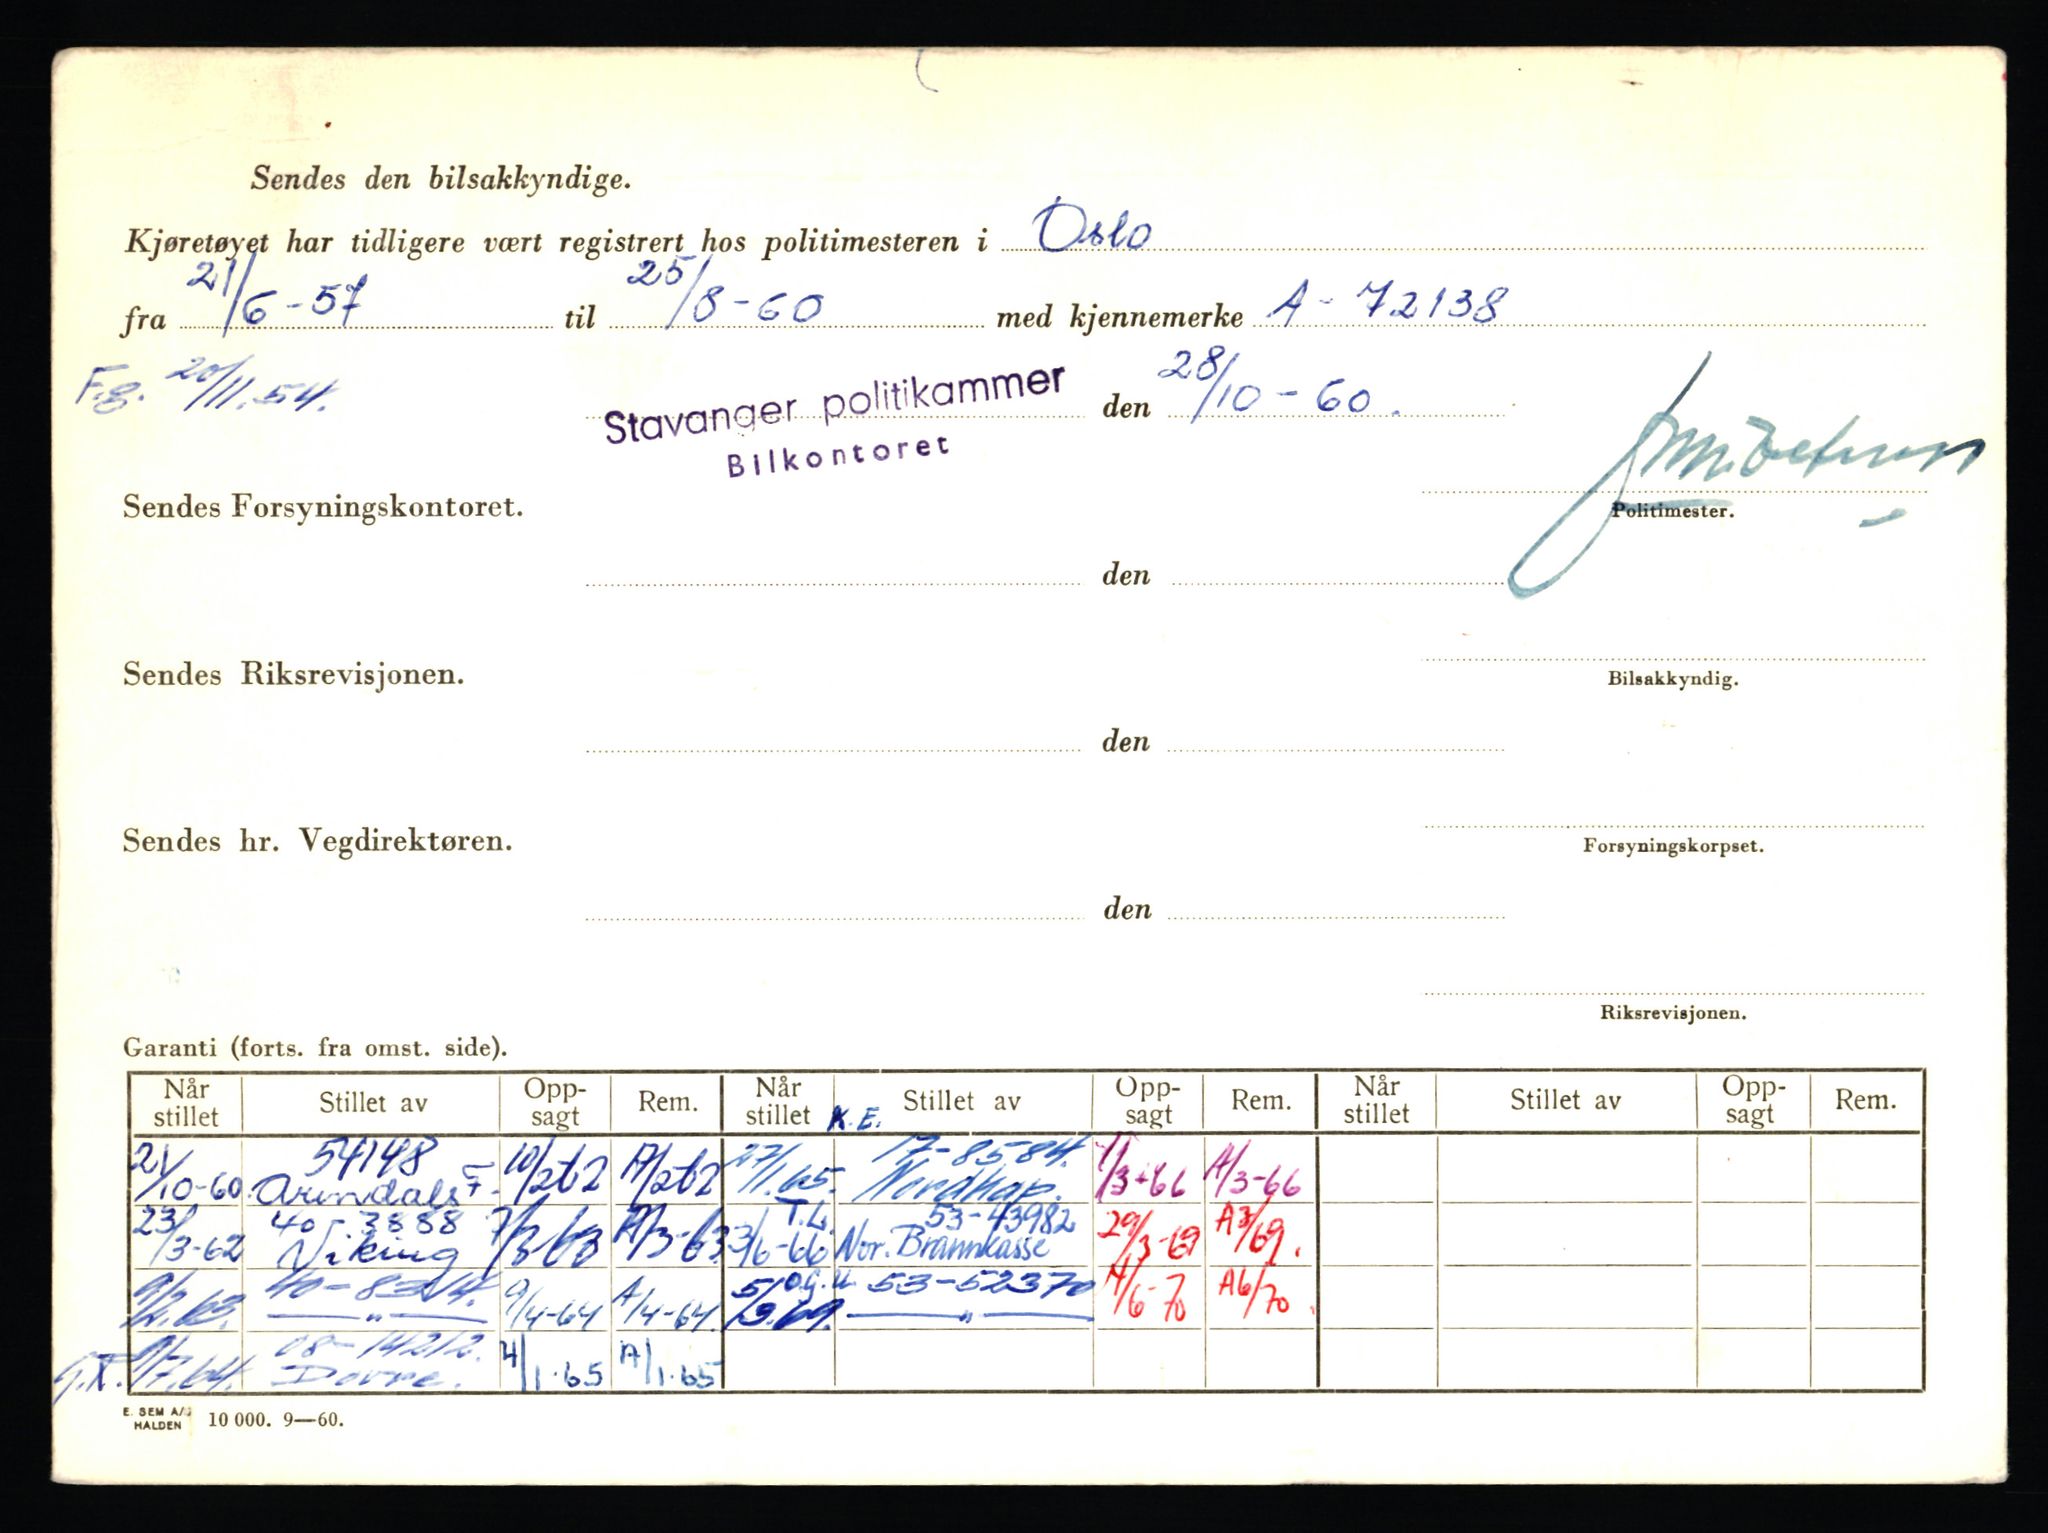 Sendes den bilsakkyndige.
Kjøretøyet har tidligere vært registrert hos politimesteren i Oslo
fra 21/6-57 til 25/8-60 med kjennemerke A-72138
F.g. 20/11.54.
Stavanger politikammer den 28/10-60.
Bilkontoret
Sendes Forsyningskontoret.
Politimester.
den
Sendes Riksrevisjonen.
Bilsakkyndig.
den
Sendes hr. Vegdirektøren.
Forsyningskorpset.
den
Riksrevisjonen.
Garanti (forts. fra omst. side).
Når stillet Stillet av Opp-sagt Rem. Når stillet Stillet av Opp-sagt Rem. Når stillet Stillet av Opp-sagt Rem.
K.E.
21/10-60 54148 Arendals F. 10/262 A/262 27/1.65. 17-8584. Nordkap. 1/3-66 A/3-66
23/3-62 40-3888 Viking 7/3-63 A/3-63 3/6-66 T.L. 53-43982 Nor. Brannkasse 29/3-69 A3/69.
40-8314. — " — 9/4-64 A/4-64. 5/9.69. O.g.u. 53-52370 — " — 4/6-70 A6/70.
9/7.64. 08-14212. Dovre. 4/1.65 A/1.65
E. SEM A/S
HALDEN 10 000. 9—60.